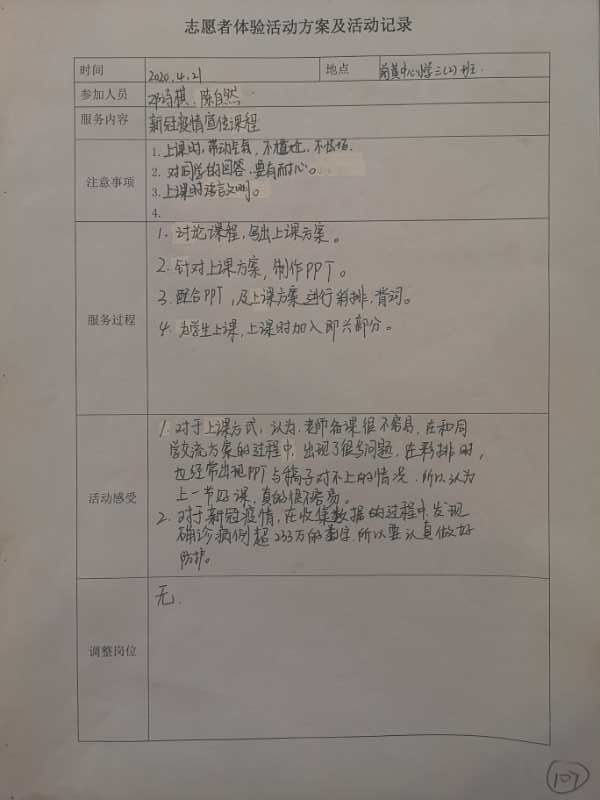 志愿者体验活动方案及活动记录
时间 2020.4.21 地点 黄中心小学三(2)班.
参加人员 邓诗棋、陈自然
服务内容 新冠疫情宣传课程
注意事项
1.上课时,带动全氛,不尴尬,不怯场.
2.对同学的回答,要有耐心。
3.上课时语言文明。
4.
服务过程
1.讨论课程,写出上课方案。
2.针对上课方案,制作PPT。
3.配合PPT,及上课方案进行彩排、背词。
4.为学生上课,上课时加入即兴部分。
活动感受
1.对于上课方式,认为.老师备课很不容易,在和同
学交流方案的过程中,出现了很多问题,在彩排时,
也经常出现PPT与稿子对不上的情况.所以认为
上一节好课,真的很不容易。
2.对于新冠疫情,在收集数据的过程中,发现
确诊病例超233万的数字,所以要认真做好
防护。
调整岗位 无.
107